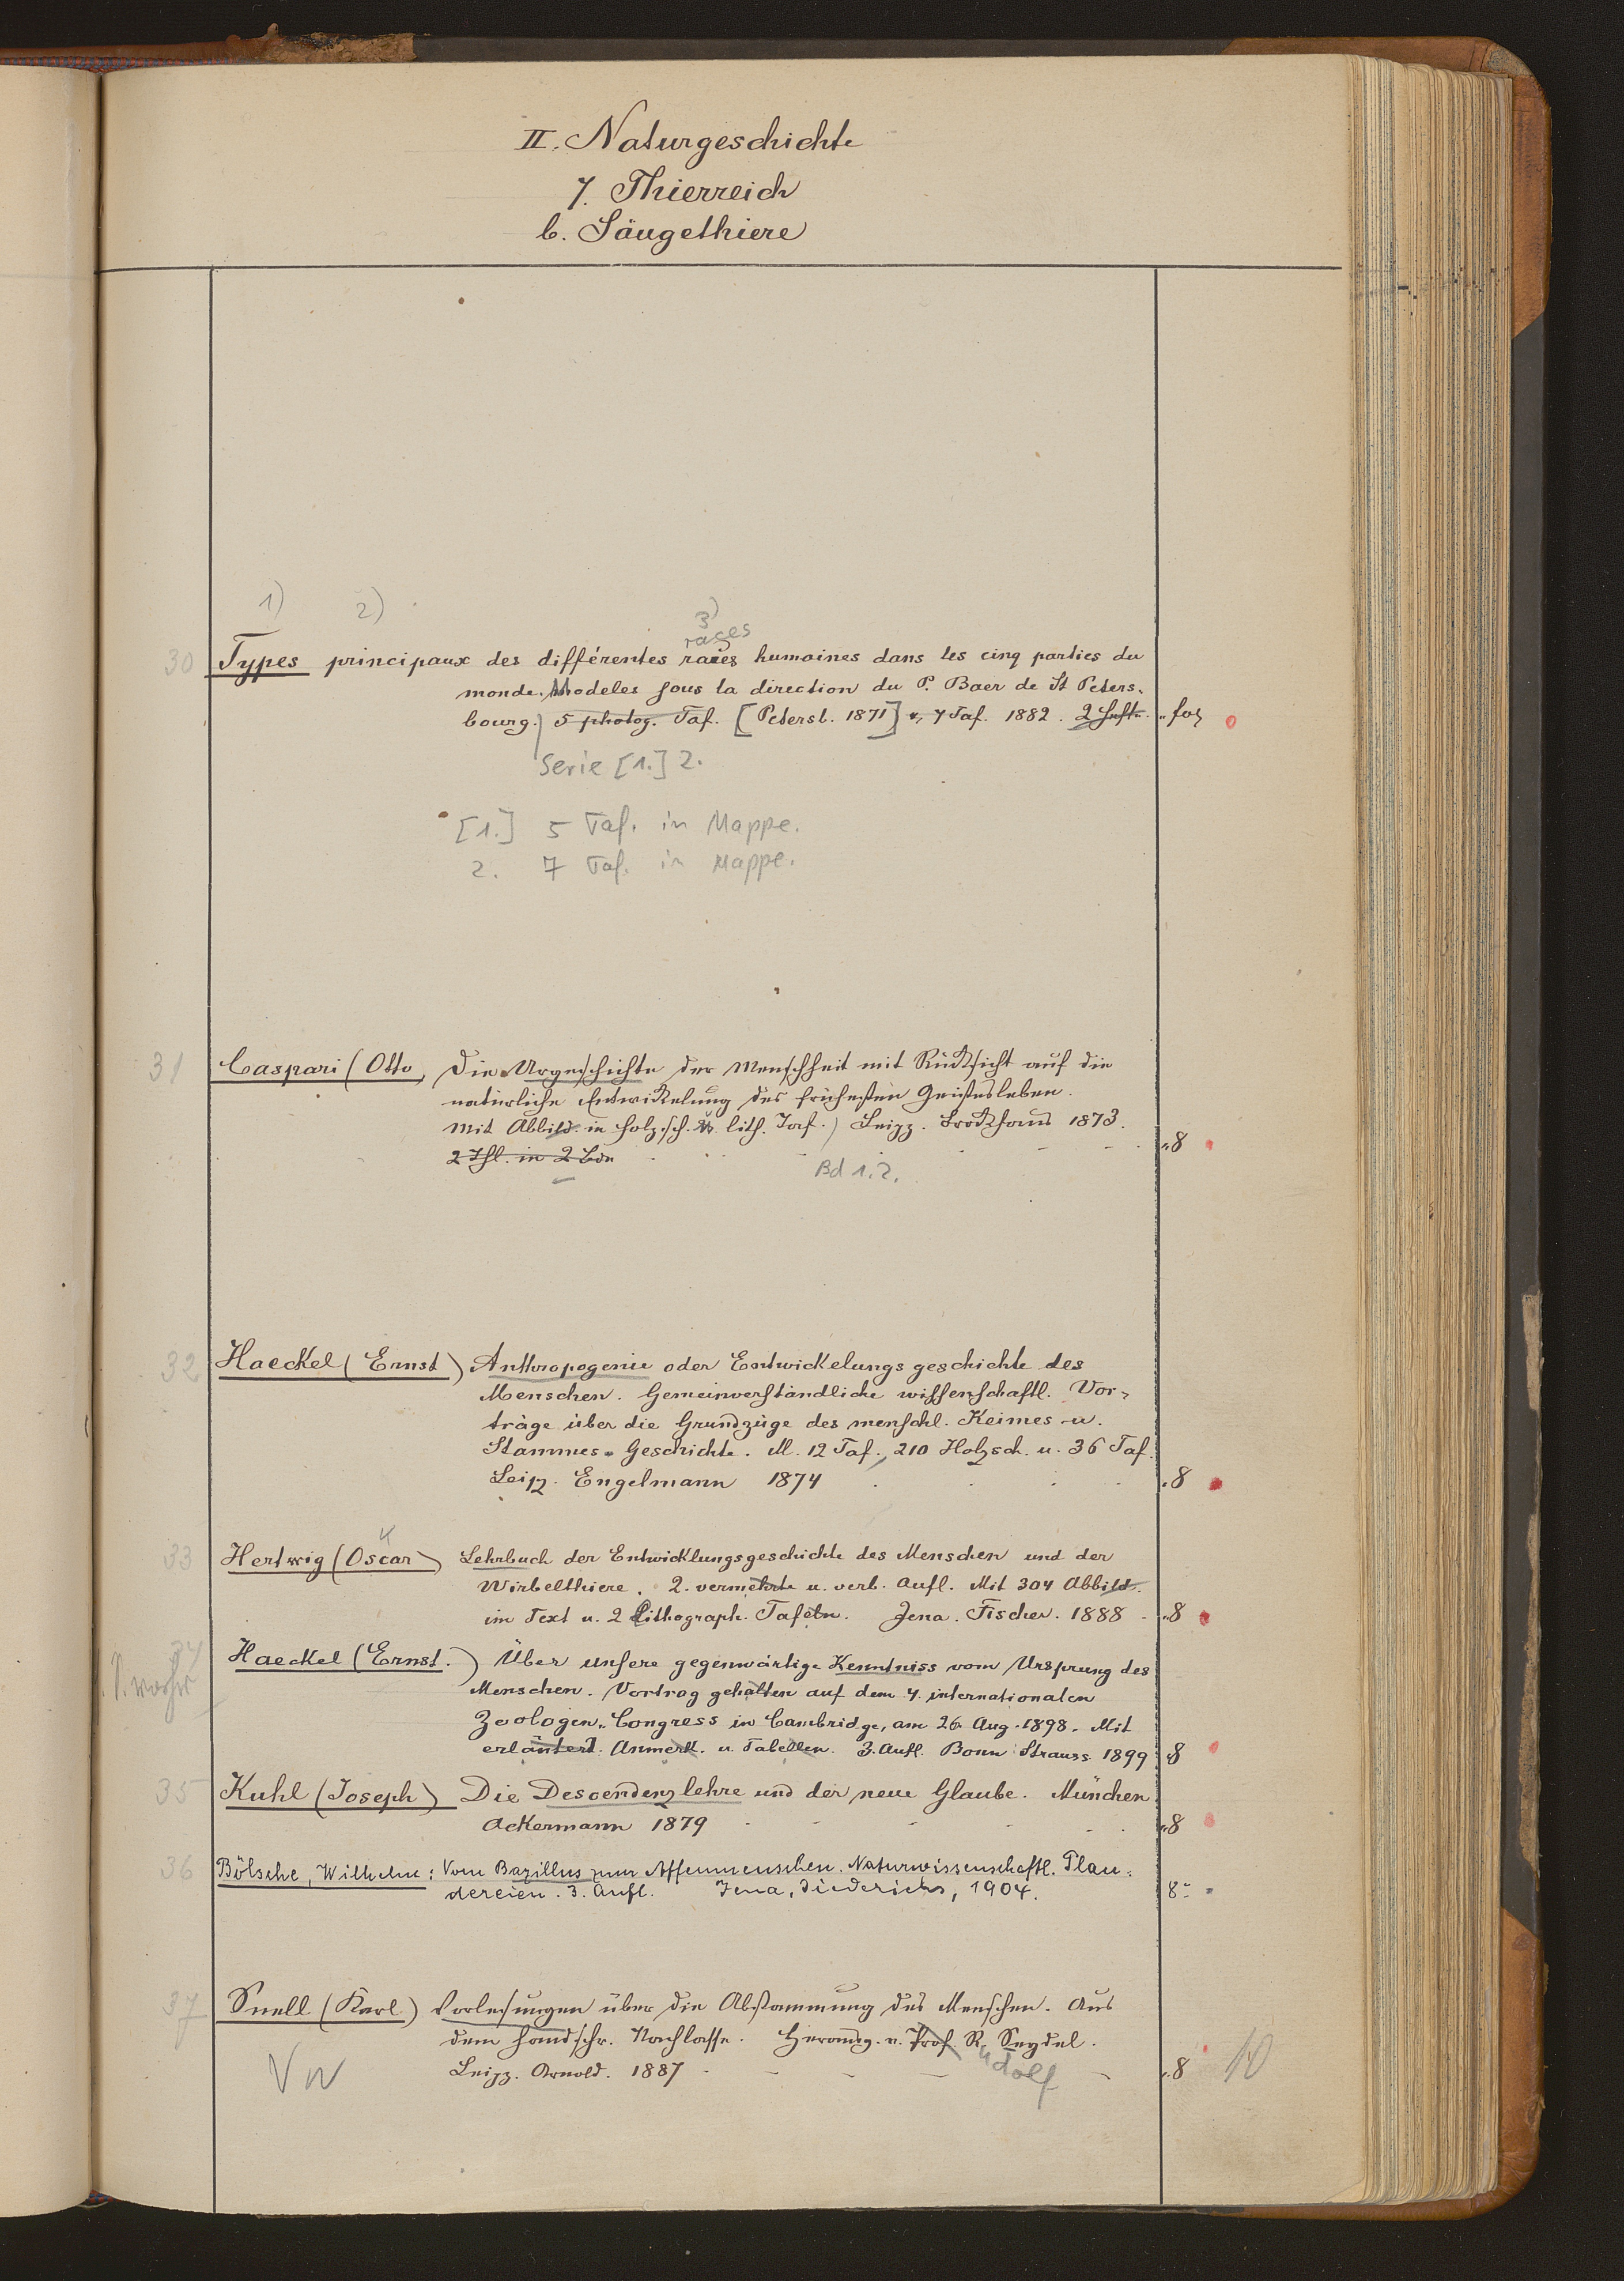 II. Naturgeschichte
7. Thierreich
b. Säugethiere
1) 2) 3)
races
30 Types principaux des différentes races humaines dans les cinq parties du
monde. Modeles sous la direction du P. Baer de St Peters-
bourg.) 5 photog. Taf. [Petersb. 1871] u. 7 Taf. 1882. 2 Hefte. „ fol
Serie [1.] 2.
[1.] 5 Taf. in Mappe.
2. 7 Taf. in Mappe.
31 Caspari (Otto, Die Urgeschichte der Menschheit mit Rücksicht auf die
natürliche Entwickelung des frühesten Geisteslebens.
Mit Abbild. in Holzsch. u. lith. Taf.) Leipz. Brockhaus 1873.
2 Thl. in 2 Bdn „ 8
Bd 1. 2.
32 Haeckel (Ernst) Anthropogenie oder Entwickelungsgeschichte des
Menschen. Gemeinverständliche wissenschaftl. Vor-
träge über die Grundzüge des menschl. Keimes- u.
Stammes-Geschichte. M. 12 Taf., 210 Holzsch. u. 36 Taf.
Leipz. Engelmann 1874 „ 8
33 Hertwig (Oscar) Lehrbuch der Entwicklungsgeschichte des Menschen und der
Wirbelthiere. 2. vermehrte u. verb. Aufl. Mit 304 Abbild.
im Text u. 2 Lithograph. Tafeln. Jena. Fischer. 1888 „ 8
34 Haeckel (Ernst.) Über unsere gegenwärtige Kenntniss vom Ursprung des
Menschen. Vortrag gehalten auf dem 4. internationalen
Zoologen-Congress in Cambridge, am 26. Aug. 1898. Mit
erläutert. Anmerk. u. Tabellen. 3. Aufl. Bonn Strauss 1899 8
35 Kuhl (Joseph) Die Descendenzlehre und der neue Glaube. München
Ackermann 1879 „ 8
36 Bölsche, Wilhelm: Vom Bazillus zum Affenmenschen. Naturwissenschaftl. Plau-
dereien. 3. Aufl. Jena, Diederichs, 1904. 8°
37 Snell (Karl) Vorlesungen über die Abstammung des Menschen. Aus
dem handschr. Nachlasse. Herausg. v. Prof. R. Seydel.
udolf
Leipz. Arnold. 1887 „ 8